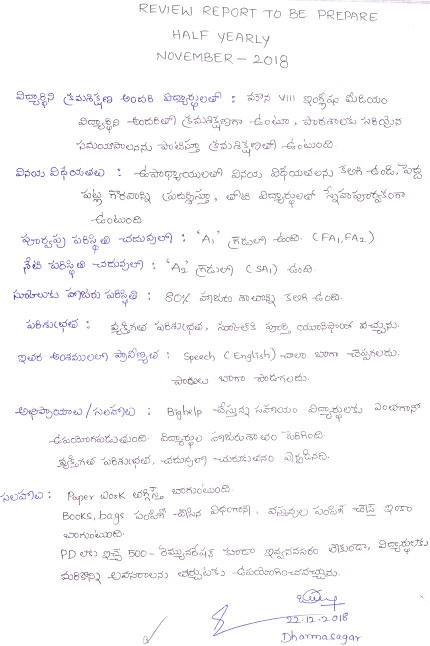 REVIEW REPORT TO BE PREPARE
HALF YEARLY
NOVEMBER - 2018
విద్యార్థిని క్రమశిక్షణ అందరి విద్యార్థులతో : మౌన VIII ఇంగ్లీషు మీడియం
విద్యార్థిని అందరితో క్రమశిక్షణగా ఉంటూ, పాఠశాలకు సరియైన
సమయపాలనను పాటిస్తూ క్రమశిక్షణతో ఉంటుంది.
వినయ విధేయతలు : ఉపాధ్యాయులతో వినయ విధేయతలను కలిగి ఉండి, పెద్దల
పట్ల గౌరవాన్ని ప్రదర్శిస్తూ, తోటి విద్యార్థులతో స్నేహపూర్వకంగా
ఉంటుంది
పూర్వపు పరిస్థితి చదువులో : 'A1' గ్రేడులో ఉంది. (FA1, FA2)
నేటి పరిస్థితి చదువులో : 'A2' గ్రేడులో (SA1) ఉంది.
స్కూలుకు హాజరు పరిస్థితి : 80% హాజరు శాతాన్ని కలిగి ఉంది.
పరిశుభ్రత : వ్యక్తిగత పరిశుభ్రత, స్కూల్‌కి పూర్తి యూనిఫాంతో వచ్చును.
ఇతర అంశములలో ప్రావీణ్యత : Speech (English) చాలా బాగా చెప్పగలదు.
పాటలు బాగా పాడగలదు.
అభిప్రాయాలు / సలహాలు : Bighelp చేస్తున్న సహాయం విద్యార్థులకు ఎంతగానో
ఉపయోగపడుతుంది. విద్యార్థుల హాజరుశాతం పెరిగింది.
వ్యక్తిగత పరిశుభ్రత, చదువులో చురుకుతనం ఏర్పడినది.
సలహాలు : Paper work తగ్గిస్తే బాగుంటుంది.
Books, bags పంపిణీ చేసిన విధంగానే, వస్తువుల పంపిణీ చేస్తే ఇంకా
బాగుంటుంది.
PD లకు ఇచ్చే 500- రెమ్యునరేషన్ కూడా ఇవ్వనవసరం లేకుండా, విద్యార్థులకు
మరికొన్ని అవసరాలను తీర్చుటకు ఉపయోగించవచ్చును.
22.12.2018
Dharmasagar